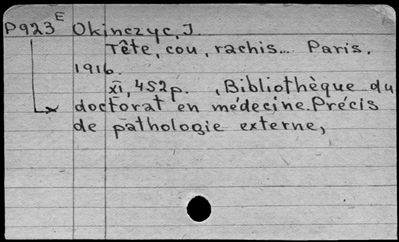 P923E Okinczyc, J.
Tête, cou, rachis... Paris,
1916.
xi, 452p. , Bibliothèque du
doctorat en médecine. Précis
de pathologie externe,